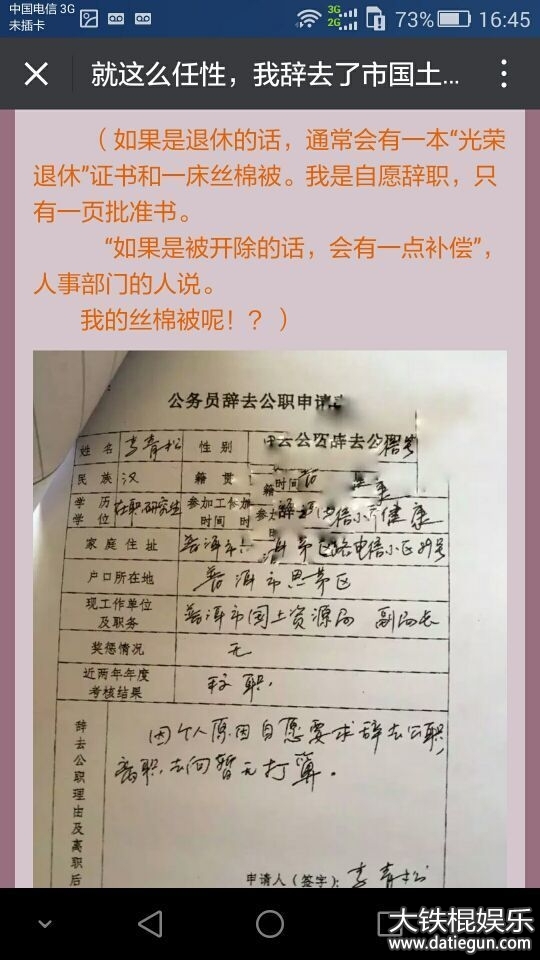 中国电信 3G
未插卡
3G
2G
73%
16:45
就这么任性，我辞去了市国土...
（如果是退休的话，通常会有一本“光荣
退休”证书和一床丝棉被。我是自愿辞职，只
有一页批准书。
“如果是被开除的话，会有一点补偿”，
人事部门的人说。
我的丝棉被呢！？）
公务员辞去公职申请
姓名 李青松 性别
民族 汉 籍贯
学历 学位 在职研究生 参加工作 时间 健康
家庭住址 普洱市 电信小区39号
户口所在地 普洱市思茅区
现工作单位
及职务 普洱市国土资源局 副局长
奖惩情况 无
近两年年度
考核结果 称职.
辞去公职理由及离职后
因个人原因自愿要求辞去公职,
离职去向暂无打算.
申请人（签字）: 李青松
大铁棍娱乐
www.datiegun.com